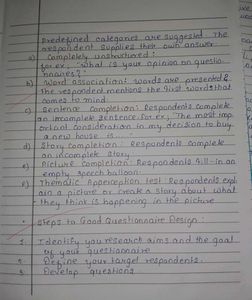 Predefined categories are suggested. The
respondent supplies their own answer.
a) Completely unstructured:
for ex; what is your opinion on questio-
nnaires?
b) Word association: words are presented &
the responded mentions the first word that
comes to mind
c) Sentence completion: Respondents complete
an incomplete sentence. for ex; The most imp
ortant consideration in my decision to buy
a new house is..
d) Story completion: Respondents complete
an incomplete story
e) Picture Completion: Respondents fill-in an
empty speech balloon
f) Thematic Apperception test: Respondents expl
ain a picture or create a story about what
they think is happening in the picture
Steps to Good Questionnaire Design:
1. Identify you research aims and the goal
of your questionnaire
2. Define your target respondents.
3. Develop questions